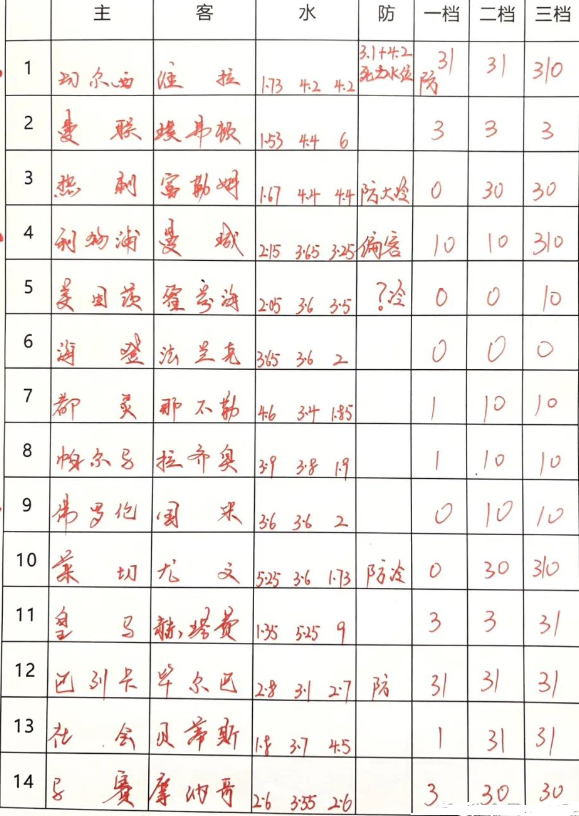 主 客 水 防 一档 二档 三档
1 切尔西 维拉 1.73 4.2 4.2 3.1+4.2 死力水位 防 31 31 310
2 曼联 埃弗顿 1.53 4.4 6 3 3 3
3 热刺 富勒姆 1.67 4.4 4.4 防大冷 0 30 30
4 利物浦 曼城 2.15 3.65 3.25 偏客 10 10 310
5 美因茨 霍芬海 2.05 3.6 3.5 ?冷 0 0 10
6 海登 法兰克 3.65 3.6 2 0 0 0
7 都灵 那不勒 4.6 3.4 1.85 1 10 10
8 帕尔马 拉齐奥 3.9 3.8 1.9 1 10 10
9 佛罗伦 国米 3.6 3.6 2 0 10 10
10 莱切 尤文 5.25 3.6 1.73 防冷 0 30 310
11 皇马 赫塔费 1.35 5.25 9 3 3 31
12 巴列卡 毕尔巴 2.8 3.1 2.7 防 31 31 31
13 社会 贝蒂斯 1.8 3.7 4.5 1 31 31
14 马赛 摩纳哥 2.6 3.55 2.6 3 30 30